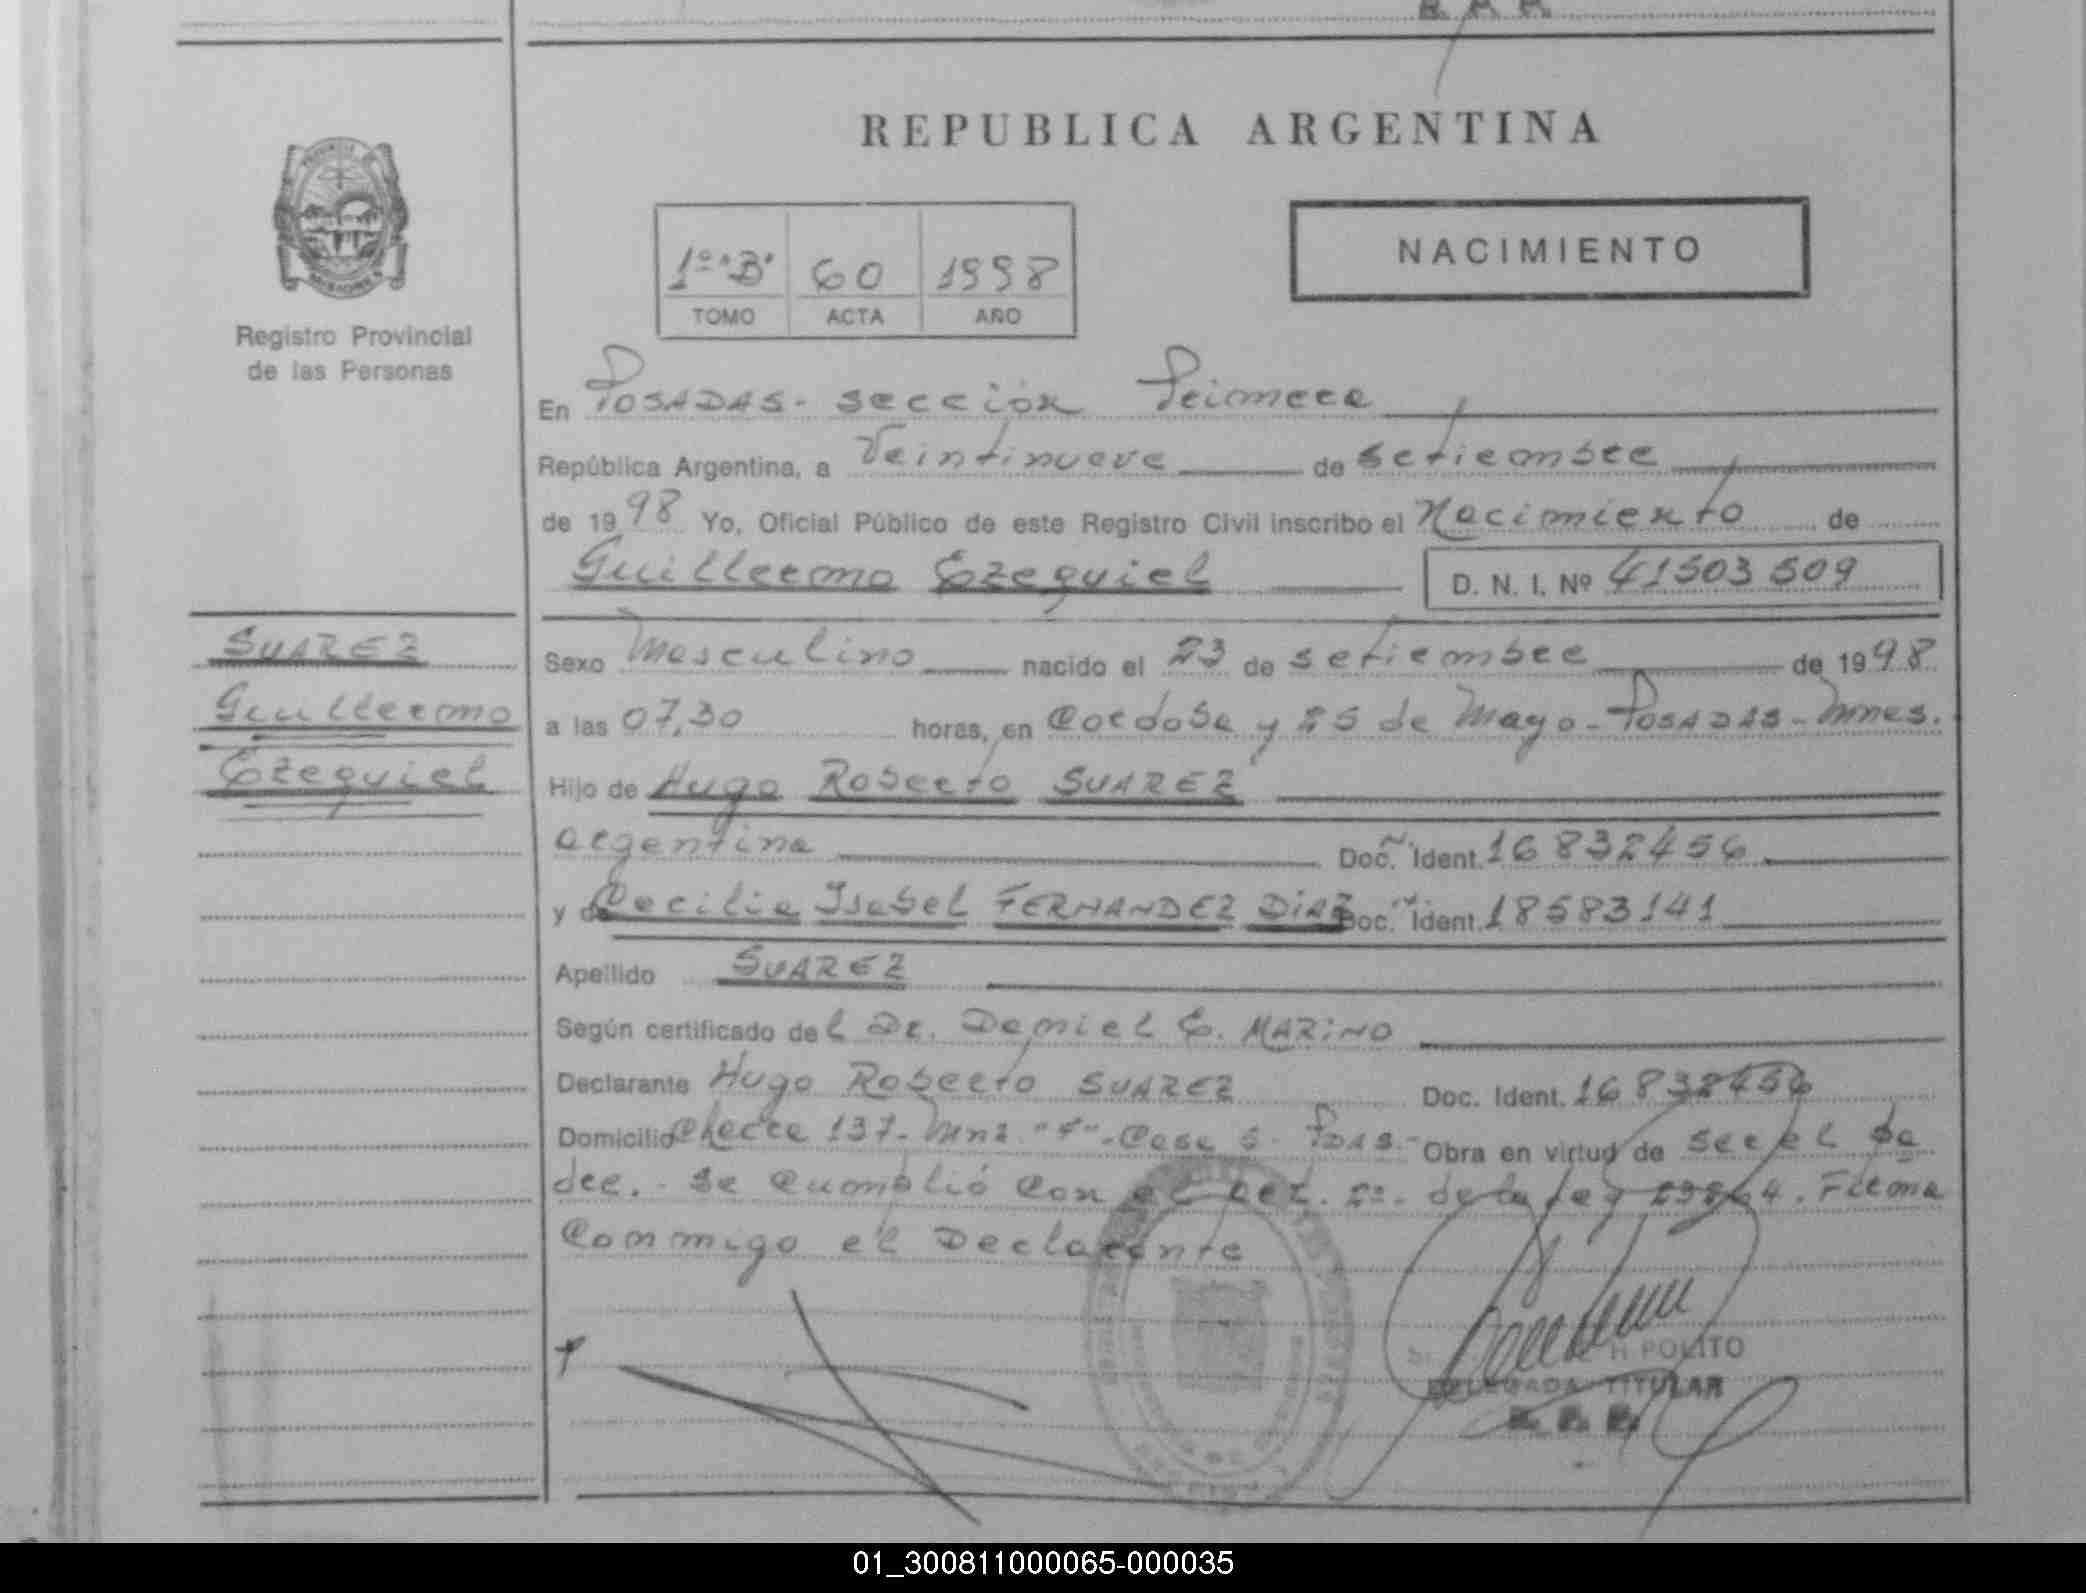 REPUBLICA ARGENTINA
PROVINCIA DE
MISIONES
Registro Provincial
de las Personas
1º "B" 60 1998
TOMO ACTA AÑO
NACIMIENTO
En POSADAS - sección Primera
República Argentina, a Veintinueve de setiembre
de 1998 Yo, Oficial Público de este Registro Civil inscribo el Nacimiento de
Guillermo Ezequiel D. N. I. Nº 41503509
SUAREZ
Guillermo
Ezequiel
Sexo Masculino nacido el 23 de setiembre de 1998
a las 07,30 horas, en Cordoba y 25 de Mayo - POSADAS - Mnes.
Hijo de Hugo Roberto SUAREZ
argentina Doc. Ident. 16832456
y de Cecilia Isabel FERNANDEZ DIAZ Doc. Ident. 18583141
Apellido SUAREZ
Según certificado del Dr. Daniel E. MARINO
Declarante Hugo Roberto SUAREZ Doc. Ident. 16832456
Domicilio Chacra 137 - Mnz. - Casa 5 - Pdas. - Obra en virtud de ser el pa
dre. - Se cumplió con el art. 2º - de la Ley Firma
conmigo el Declarante
H POLITO
DELEGADA TITULAR
R. P. P.
01_300811000065-000035